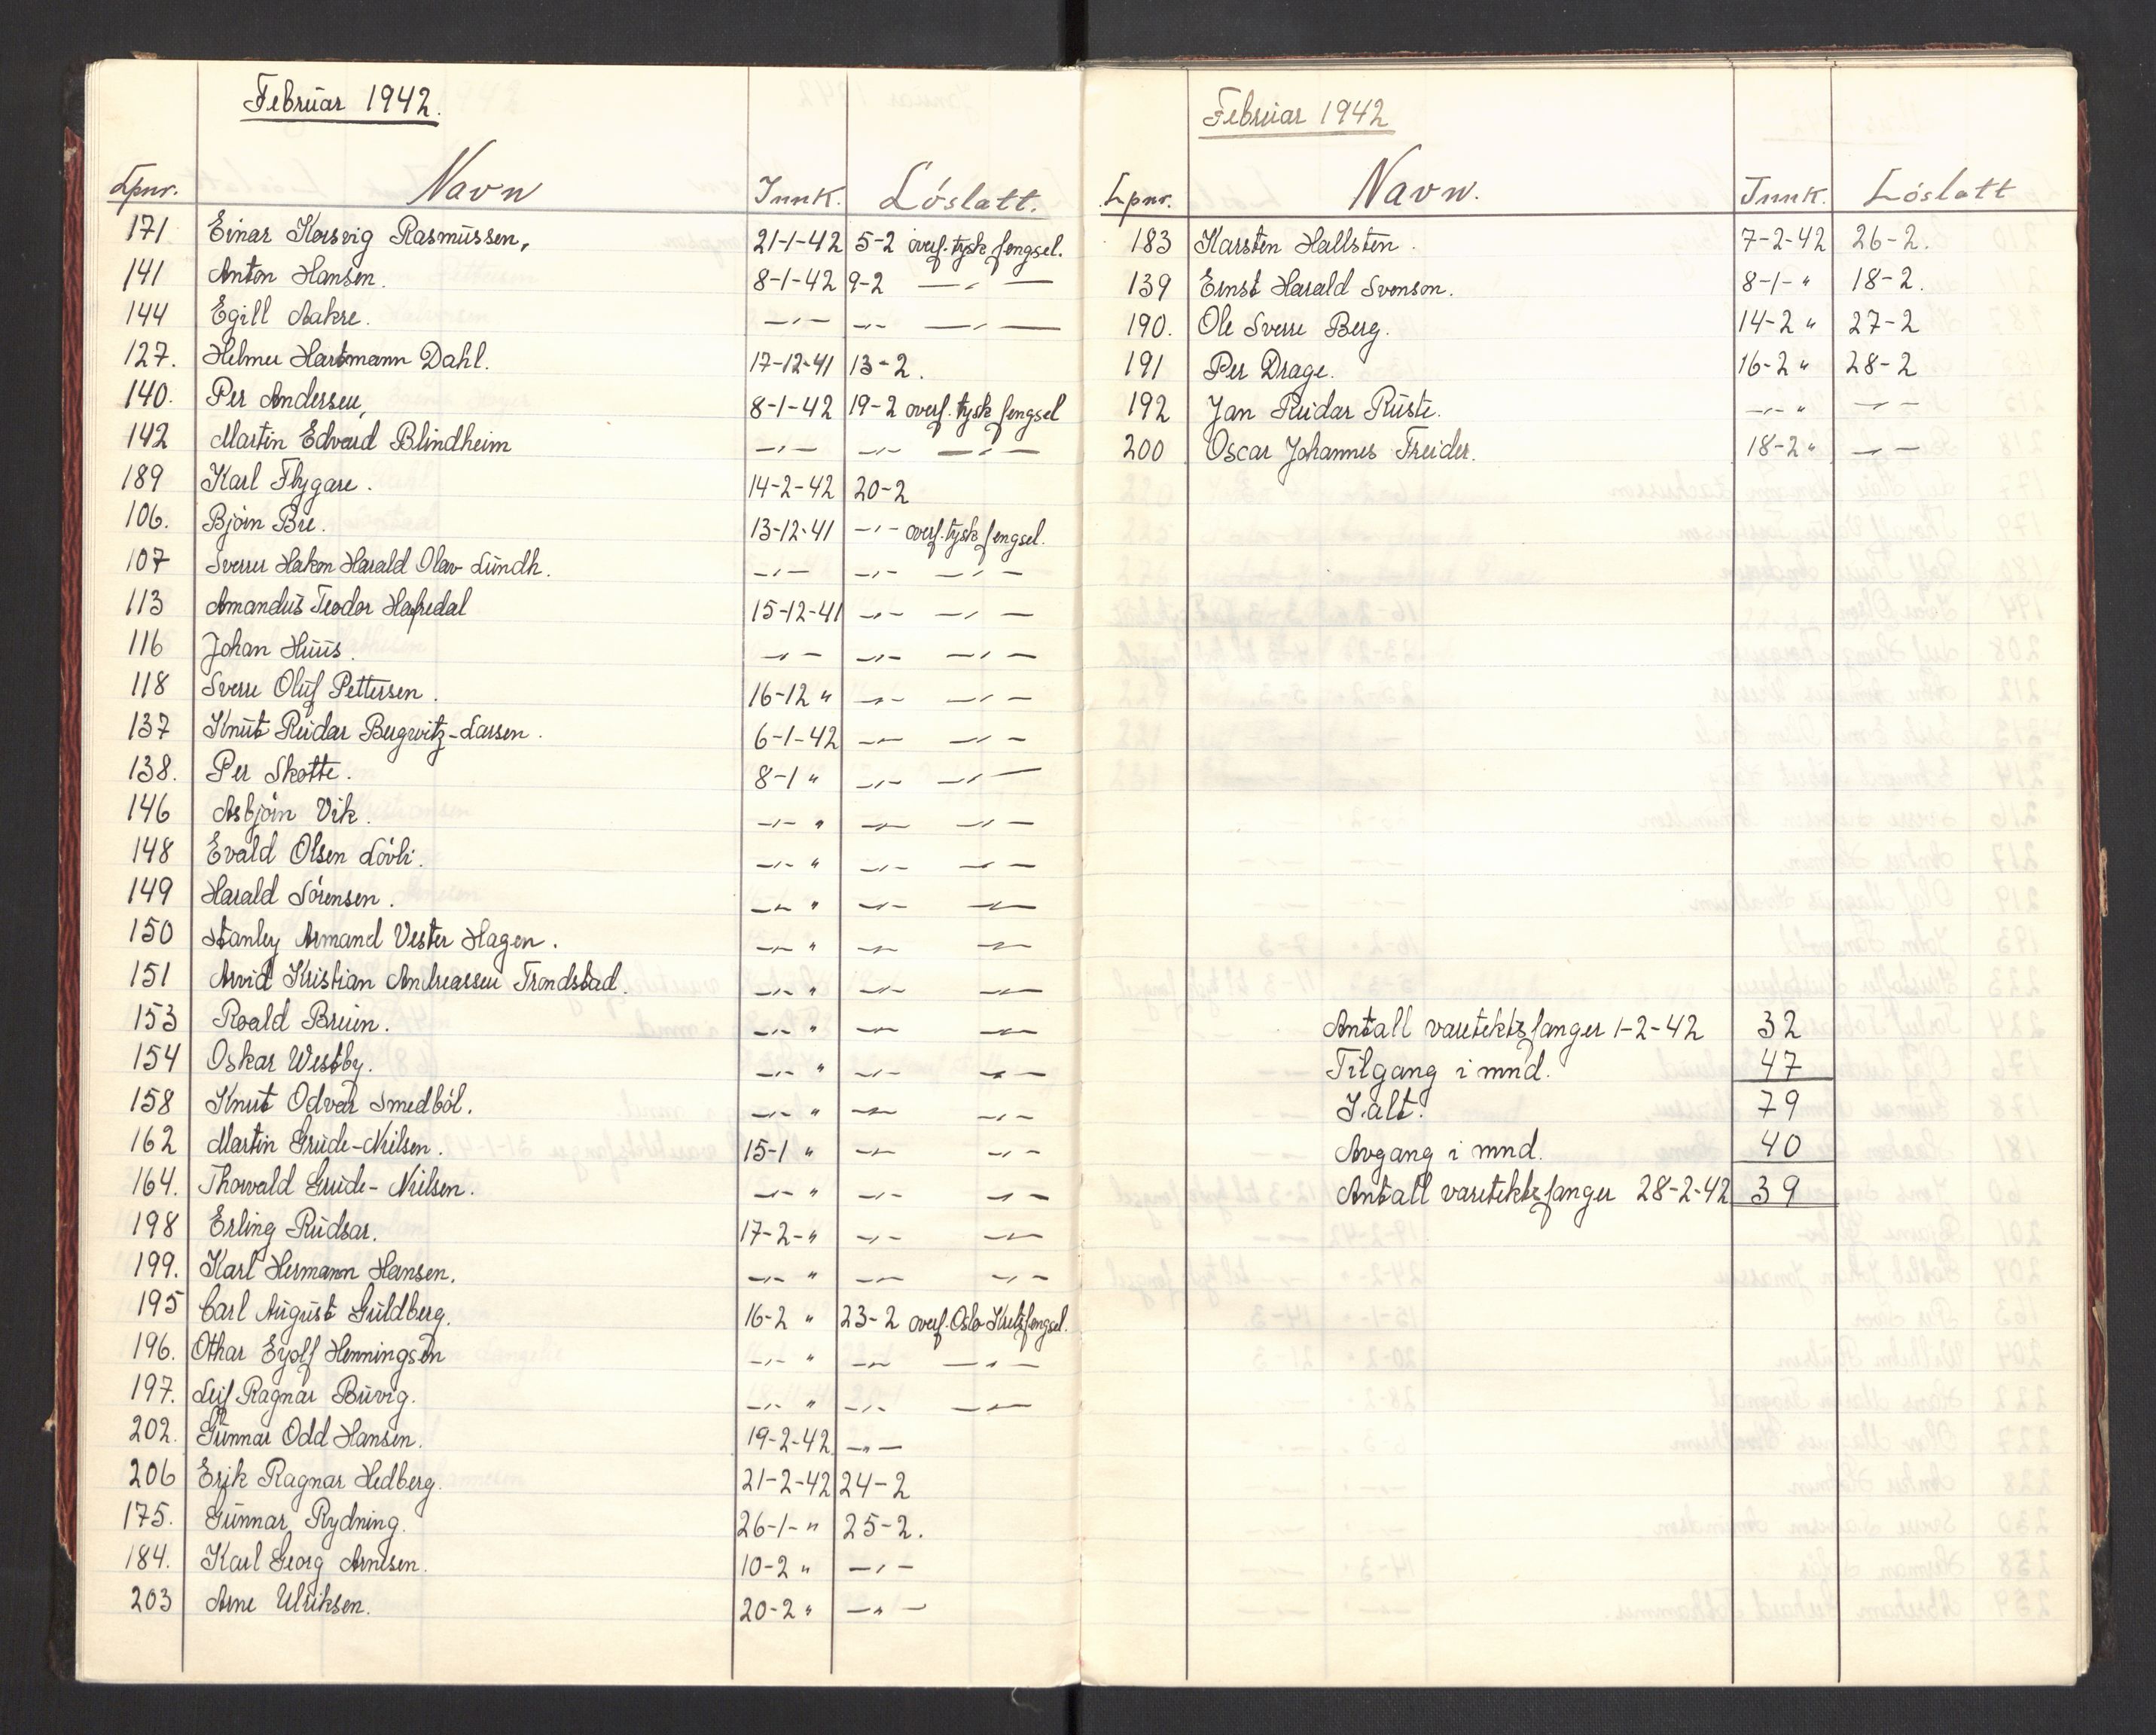 Februar 1942.
Lpnr. Navn Innk. Löslatt.
171 Einar Korsvig Rasmussen, 21-1-42 5-2 overf. tysk fengsel.
141 Anton Hansen. 8-1-42 9-2 —"—
144 Egill Aakre. —"— —"— —"—
127. Helmer Hartmann Dahl. 17-12-41 13-2.
140. Per Andersen, 8-1-42 19-2 overf. tysk fengsel
142 Martin Edvard Blindheim —"— —"— —"—
189 Karl Flygare. 14-2-42 20-2
106. Björn Bre. 13-12-41 —"— overf. tysk fengsel.
107 Sverre Hakon Harald Olav Lundh. —"— —"— —"—
113 Amandus Teodor Hafredal 15-12-41 —"— —"—
116 Johan Huus. —"— —"— —"—
118 Sverre Oluf Pettersen. 16-12 " —"— —"—
137 Knut Reidar Bergwitz-Larsen. 6-1-42 —"— —"—
138. Per Skotte. 8-1 " —"— —"—
146 Asbjörn Vik. —"— " —"— —"—
148 Evald Olsen Lövli. —"— " —"— —"—
149 Harald Sörensen. —"— " —"— —"—
150 Stanley Armand Vester Hagen. —"— " —"— —"—
151 Arvid Kristian Andreassen Trondstad. —"— " —"— —"—
153 Roald Bruun. —"— " —"— —"—
154 Oskar Westby. —"— " —"— —"—
158 Knut Odvar Smedböl. —"— " —"— —"—
162 Martin Grude-Nielsen. 15-1 " —"— —"—
164. Thorvald Grude-Nielsen. —"— " —"— —"—
198 Erling Rudsar. 17-2-" —"— —"—
199. Karl Hermann Hansen. —"— " —"— —"—
195 Carl August Guldberg. 16-2 " 23-2 overf. Oslo Kretsfengsel.
196. Othar Eyolf Henningsen —"— " —"— —"—
197. Leif Ragnar Buvig. —"— " —"— —"—
202. Gunnar Odd Hansen. 19-2-42 —"—
206 Erik Ragnar Hedberg. 21-2-42 24-2
175. Gunnar Rydning. 26-1-" 25-2.
184. Karl Georg Arnesen. 10-2 " —"—
203 Arne Ulriksen. 20-2 " —"—
Februar 1942
Lpnr. Navn. Innk. Löslatt
183 Karsten Hallsten. 7-2-42 26-2.
139 Ernst Harald Svenson. 8-1-" 18-2.
190. Ole Sverre Berg. 14-2 " 27-2
191 Per Drage. 16-2 " 28-2
192 Jan Reidar Ruste. —"— " —"—
200 Oscar Johannes Freider. 18-2 " —"—
Antall varetektsfanger 1-2-42 32
Tilgang i mnd. 47
I alt. 79
Avgang i mnd. 40
Antall varetektsfanger 28-2-42 39